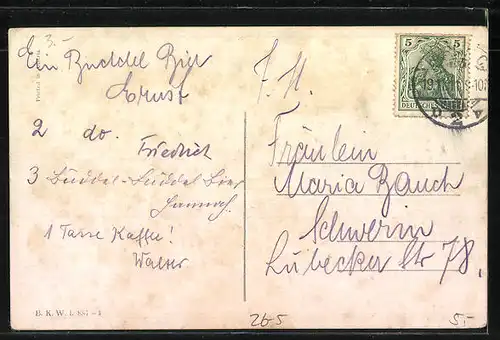 3.-
Ein Buddel Bier
Ernst
2 do.
Friedrich
3 Buddel-Buddel Bier
1 Tasse Kaffee!
Walter
B. K. W. I.
5 5
DEUTSCHES
F. H.
Fräulein
Maria Bauch
Schwerin
Lübecker Str 78.
265
5.-